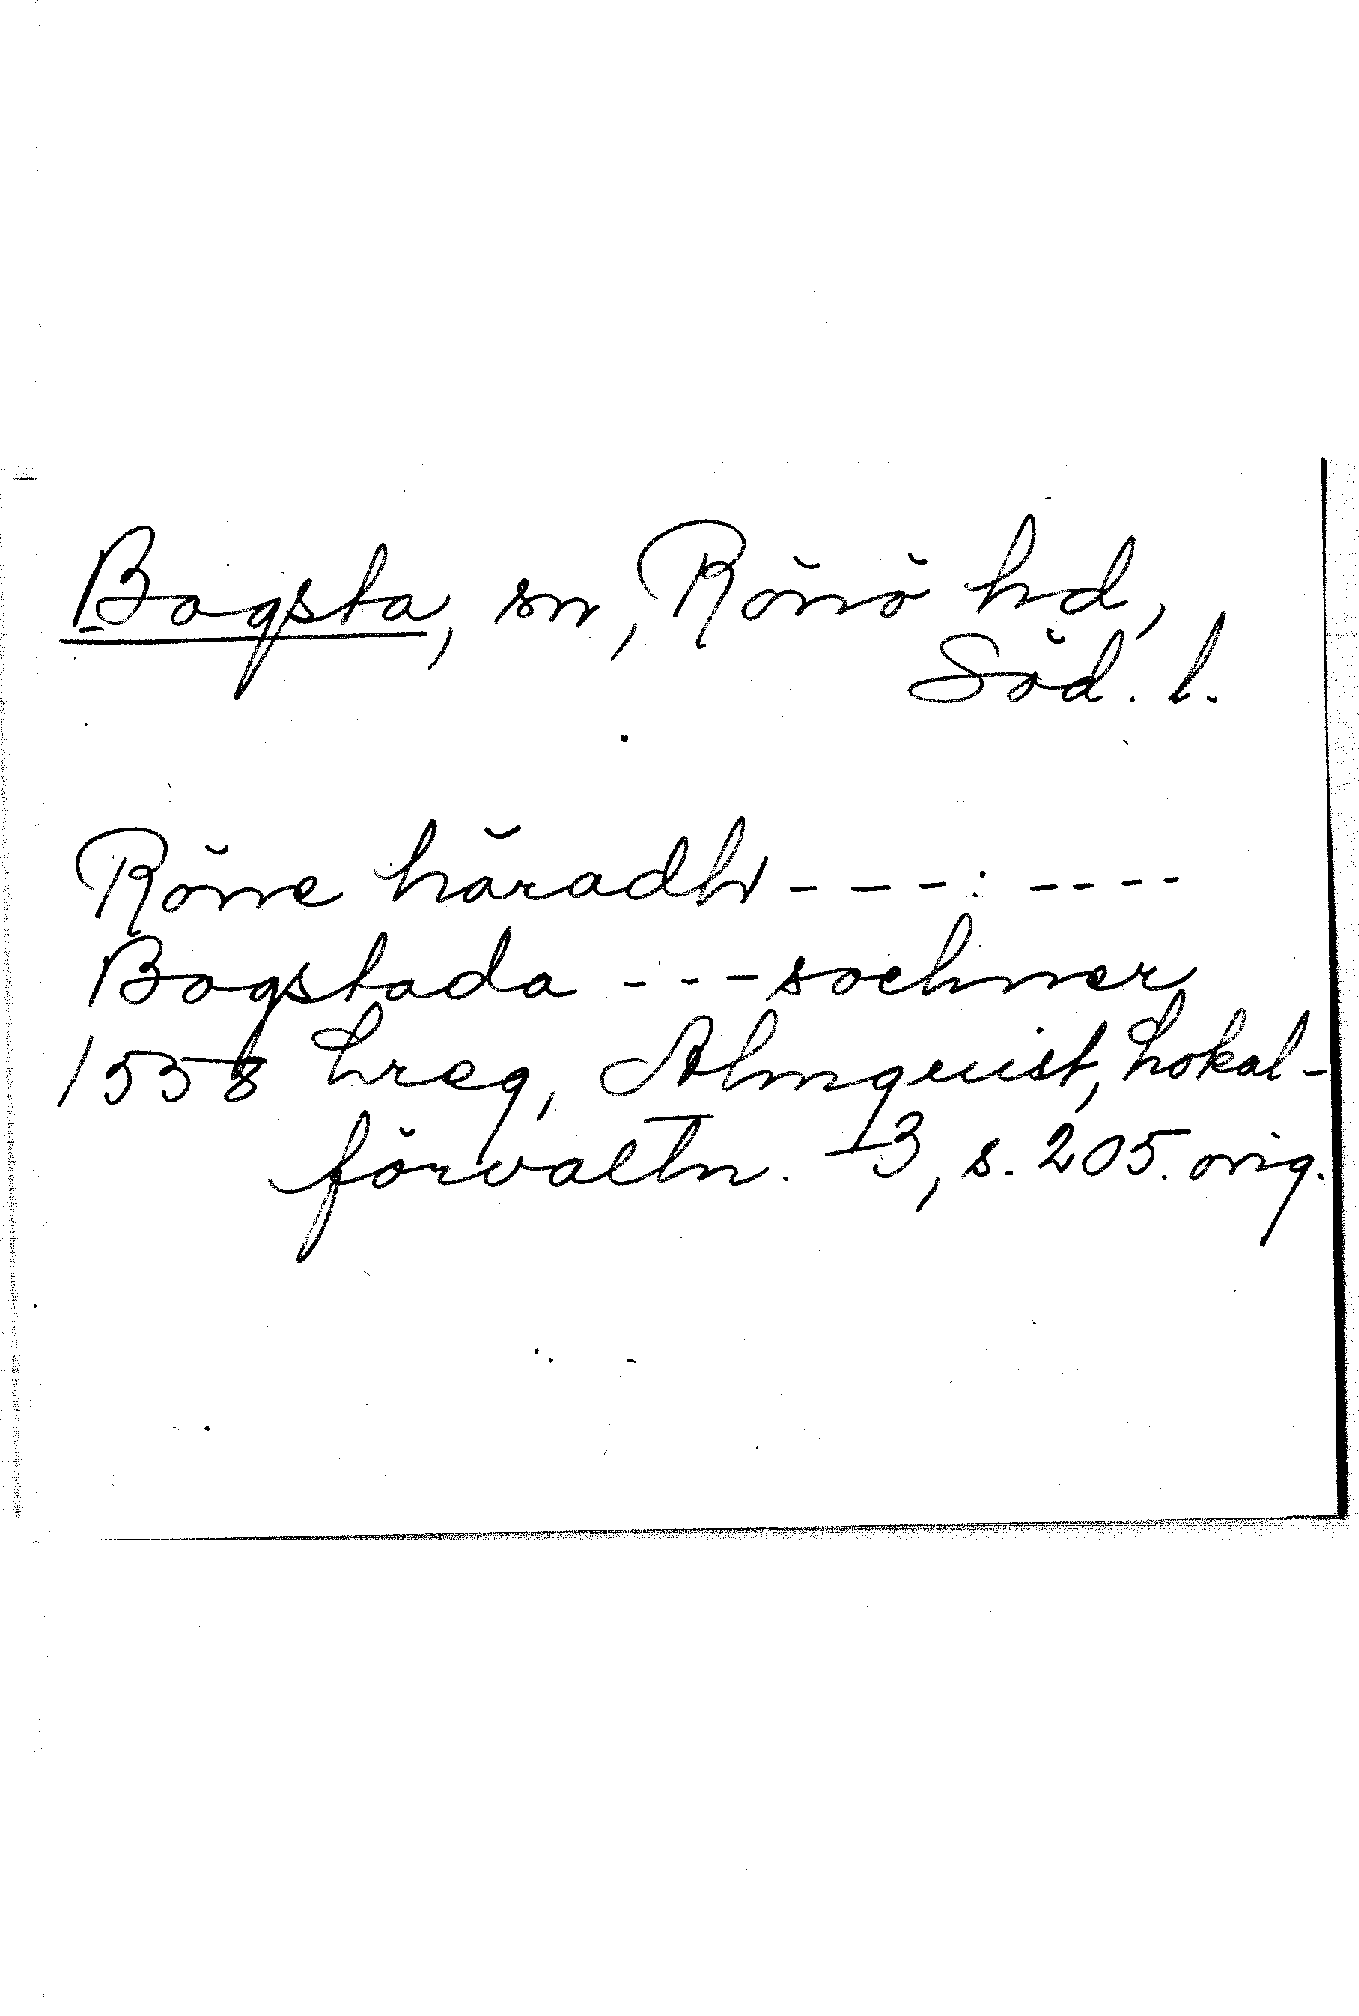 Bogsta, sn, Rönö hd,
Söd. l.
Röne häradh - - - : - - - -
Bogstada - - - sochner
1558 Lreg, Almquist, Lokal-
förvaltn. I3, s. 205. orig.